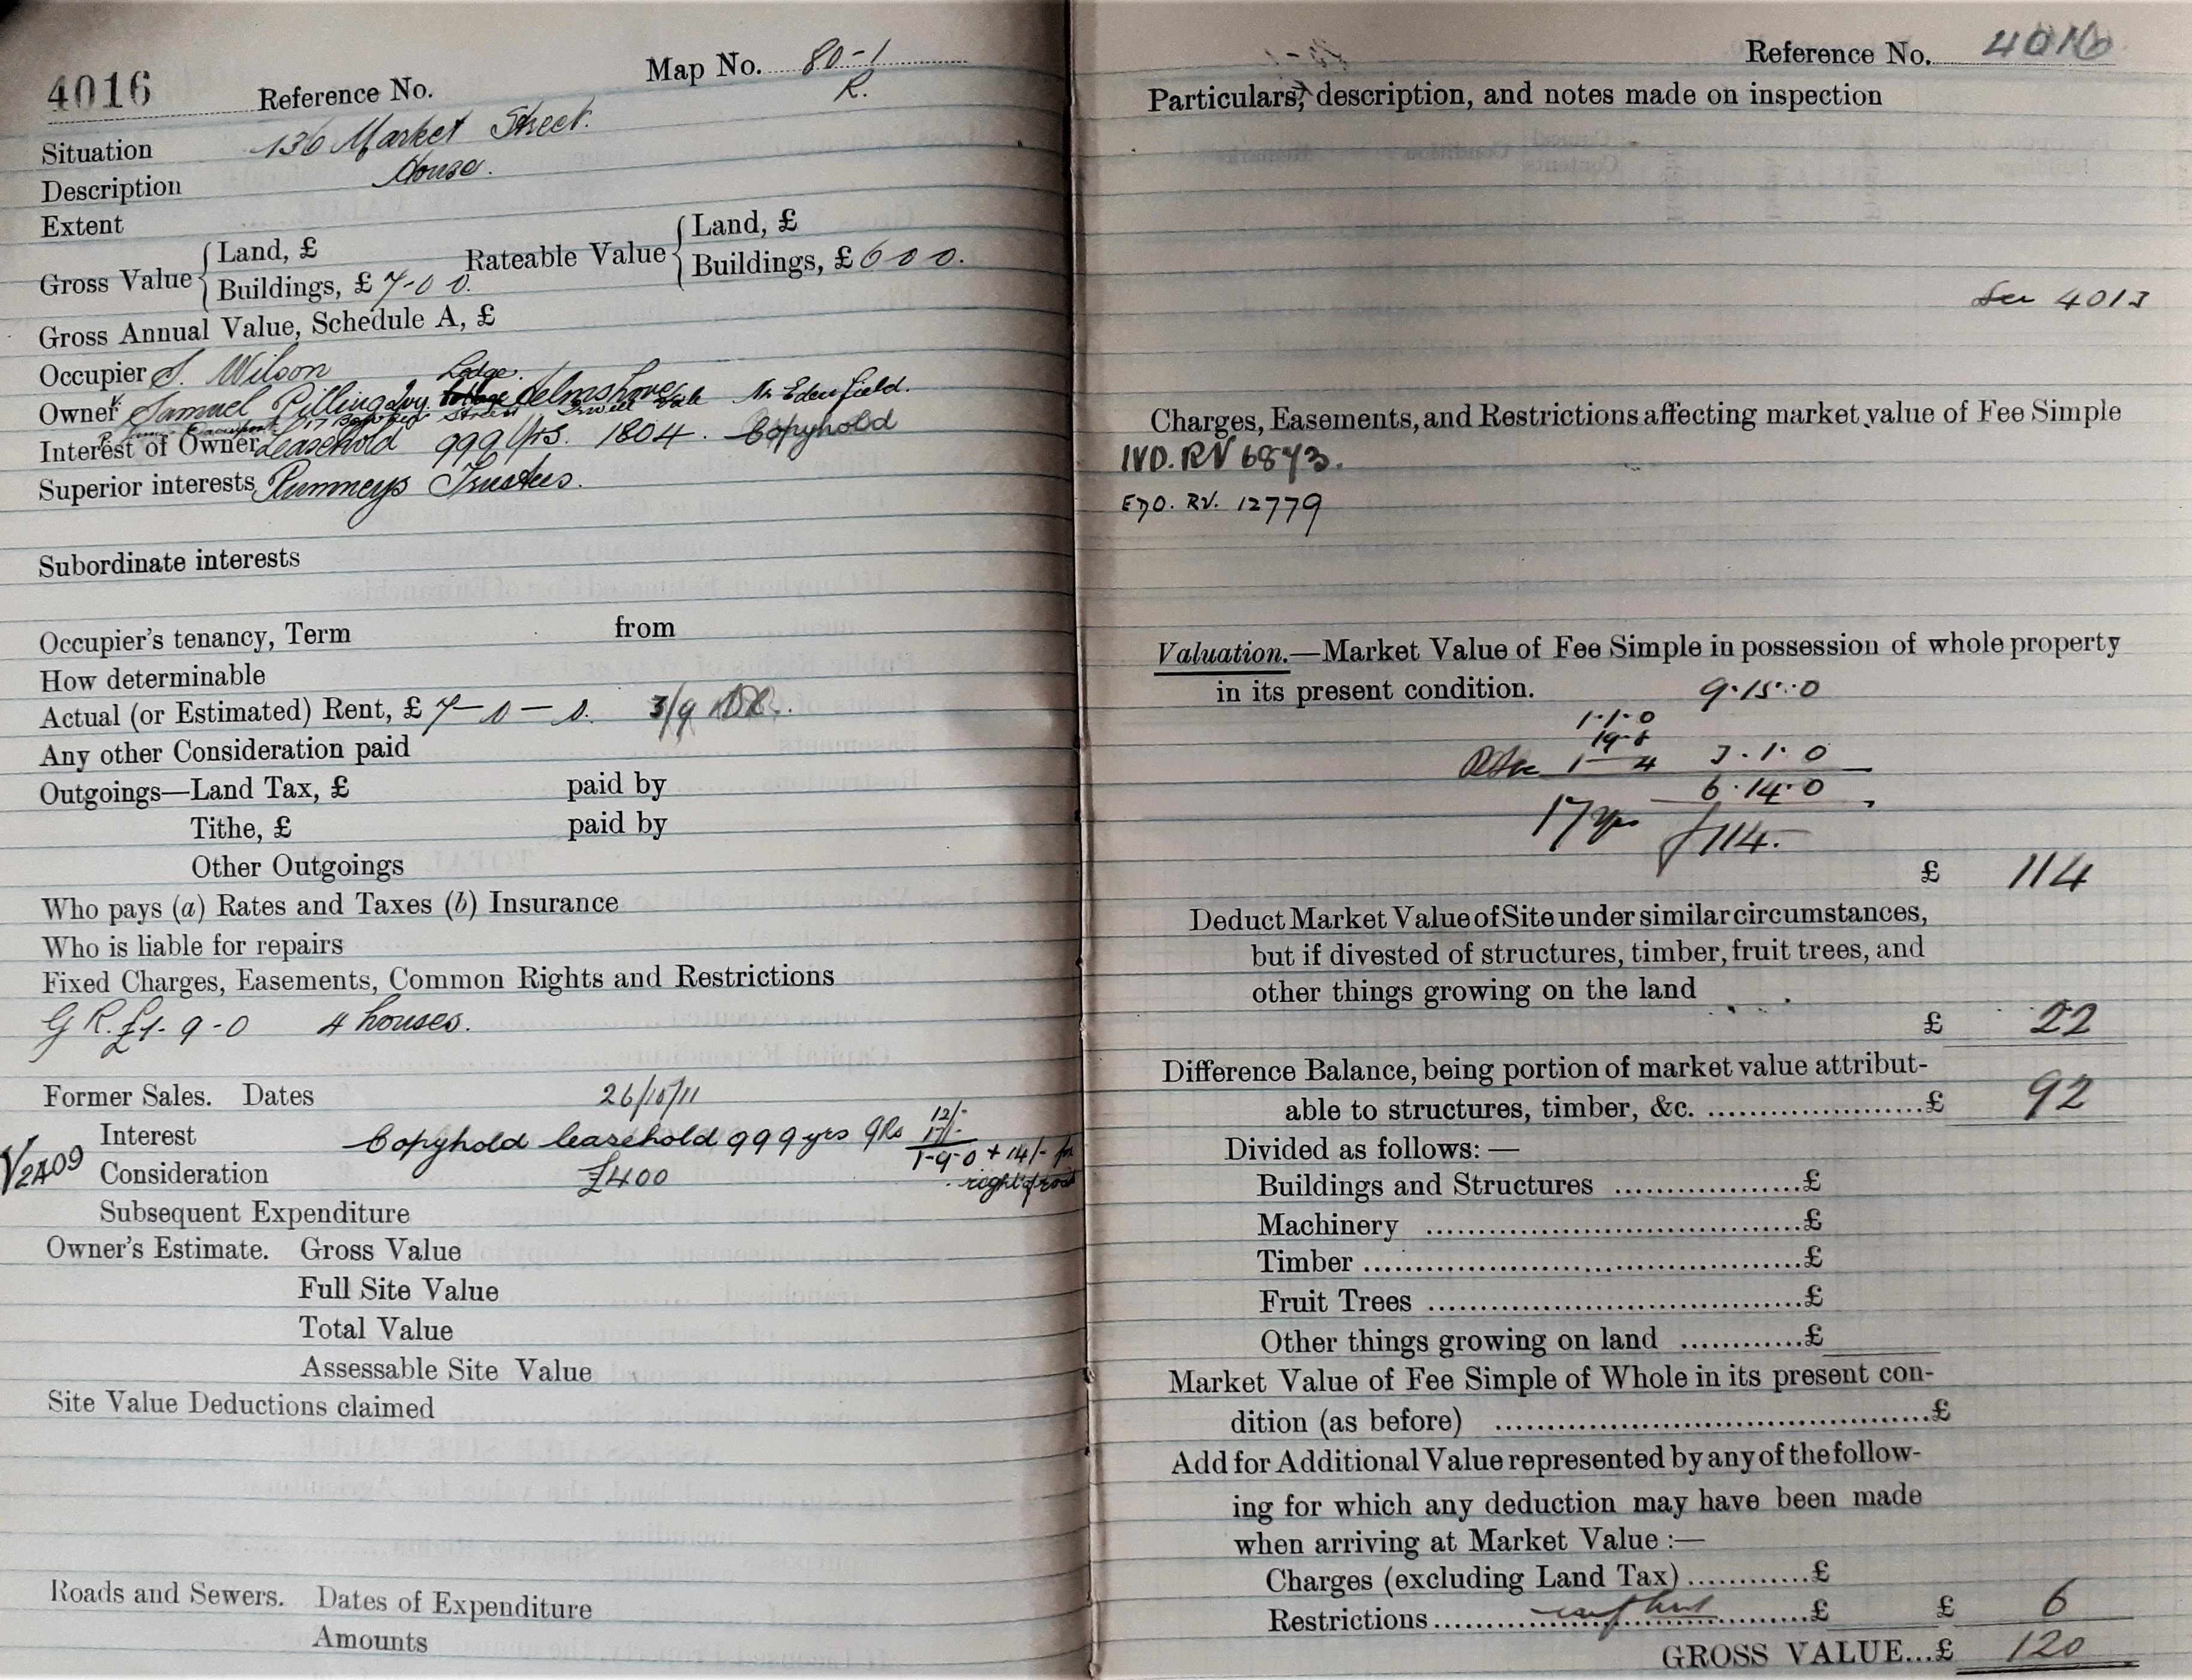 4016 Reference No. Map No. 80-1
R.
Situation 136 Market Street.
Description House.
Extent
Gross Value { Land, £
Buildings, £ 7-0 0. Rateable Value { Land, £
Buildings, £ 6 0 0.
Gross Annual Value, Schedule A, £
Occupier S. Wilson
Lodge.
Owner Samuel Pilling Ivy Cottage Helmshore Nr Edenfield.
Street Irwell Vale
Interest of Owner Leasehold 999 Yrs. 1804. Copyhold
Superior interests Rumneys Trustees.
Subordinate interests
Occupier's tenancy, Term from
How determinable
Actual (or Estimated) Rent, £ 7-0-0. 3/9
Any other Consideration paid
Outgoings—Land Tax, £ paid by
Tithe, £ paid by
Other Outgoings
Who pays (a) Rates and Taxes (b) Insurance
Who is liable for repairs
Fixed Charges, Easements, Common Rights and Restrictions
G R. £1-9-0 4 houses.
Former Sales. Dates 26/10/11
Interest Copyhold leasehold 999 yrs GRs 12/-
17/-
1-9-0 + 14/- for
right of road
V2A09 Consideration £400
Subsequent Expenditure
Owner's Estimate. Gross Value
Full Site Value
Total Value
Assessable Site Value
Site Value Deductions claimed
Roads and Sewers. Dates of Expenditure
Amounts
Reference No. 4016
Particulars, description, and notes made on inspection
See 4013
Charges, Easements, and Restrictions affecting market value of Fee Simple
IVD. RV 6873.
EDO. RV. 12779
Valuation.—Market Value of Fee Simple in possession of whole property
in its present condition. 9.15.0
1.1.0
19-8
1—4 3.1.0
6.14.0
17 yrs £114.
£ 114
Deduct Market Value of Site under similar circumstances,
but if divested of structures, timber, fruit trees, and
other things growing on the land
£ 22
Difference Balance, being portion of market value attribut-
able to structures, timber, &c. ......£ 92
Divided as follows:—
Buildings and Structures ......£
Machinery ......£
Timber ......£
Fruit Trees ......£
Other things growing on land ......£
Market Value of Fee Simple of Whole in its present con-
dition (as before) ......£
Add for Additional Value represented by any of the follow-
ing for which any deduction may have been made
when arriving at Market Value :—
Charges (excluding Land Tax) ......£
Restrictions ......£ £ 6
GROSS VALUE...£ 120